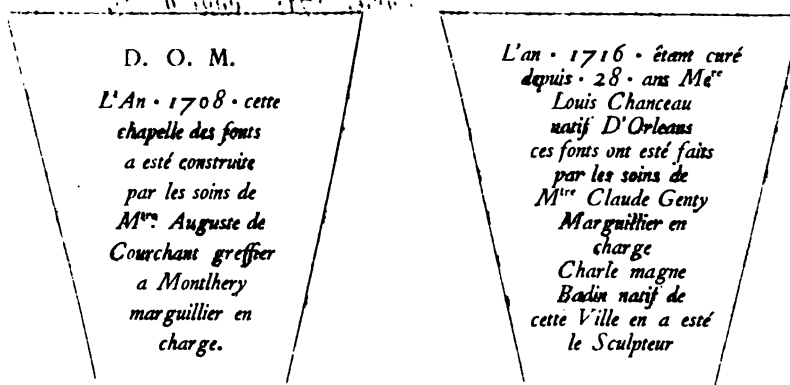 D. O. M.
L'An · 1708 · cette
chapelle des fonts
a esté construite
par les soins de
Mtre Auguste de
Courchant greffier
a Montlhery
marguillier en
charge.
L'an · 1716 · étant curé
depuis · 28 · ans Metre
Louis Chanceau
natif D'Orleans
ces fonts ont esté faits
par les soins de
Mtre Claude Genty
Marguillier en
charge
Charle magne
Badin natif de
cette Ville en a esté
le Sculpteur